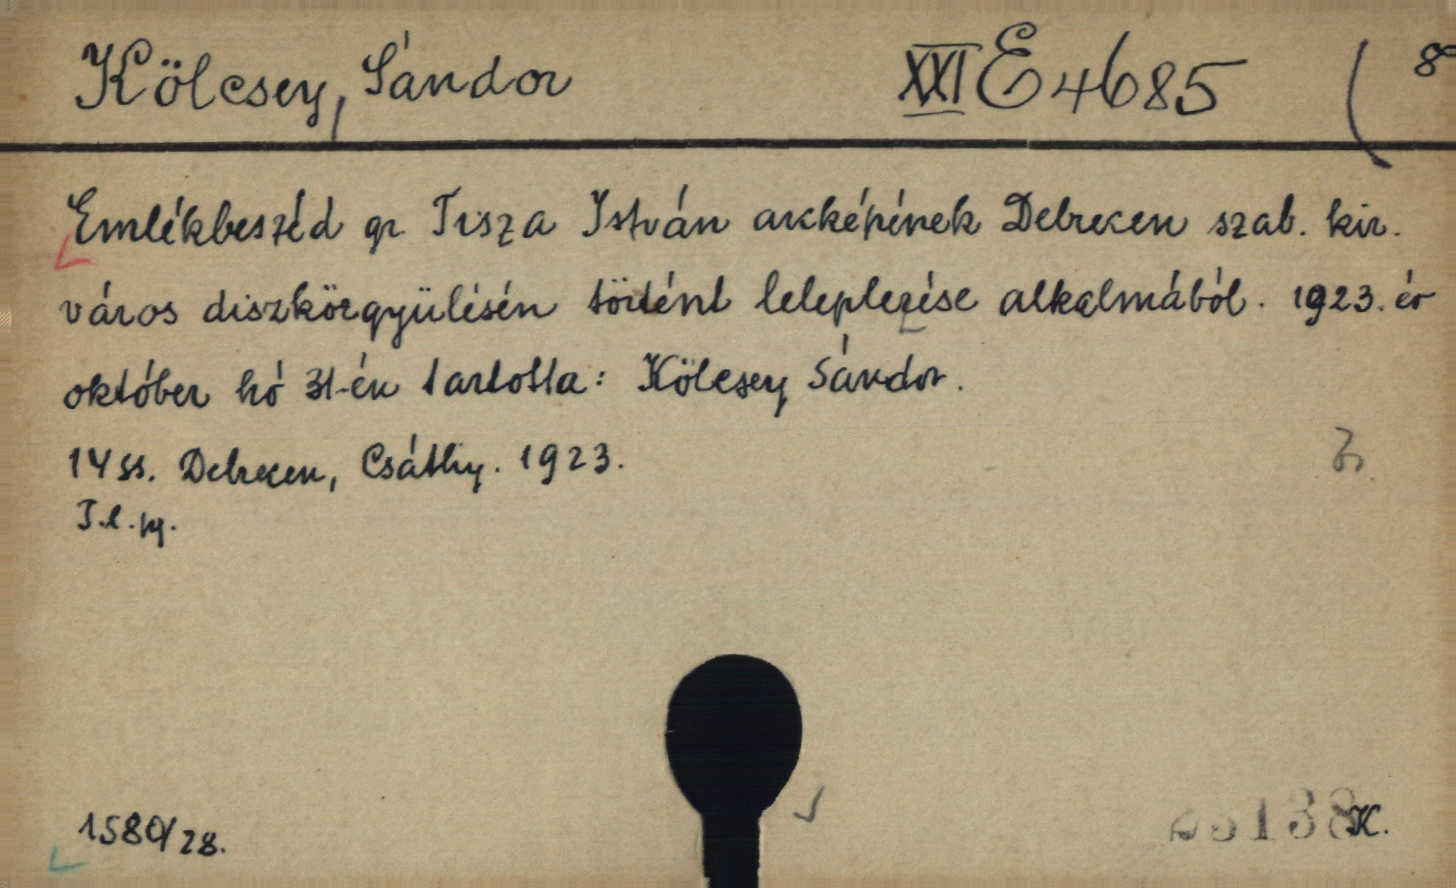 Kölcsey, Sándor XXI E 4685 ( 8°
Emlékbeszéd gr. Tisza István arcképének Debrecen szab. kir.
város diszközgyülésén történt leleplezése alkalmából. 1923. év
október hó 31-én tartotta: Kölcsey Sándor.
14 ss. Debrecen, Csáthy. 1923.
T.l. fg.
1580/28.
K.